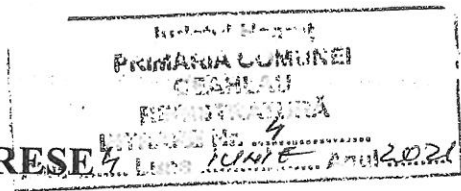 PRIMĂRIA COMUNEI
CEAHLĂU
REGISTRATURĂ
INTRARE Nr. 4
RESE 4 Luna IUNIE Anul 2021